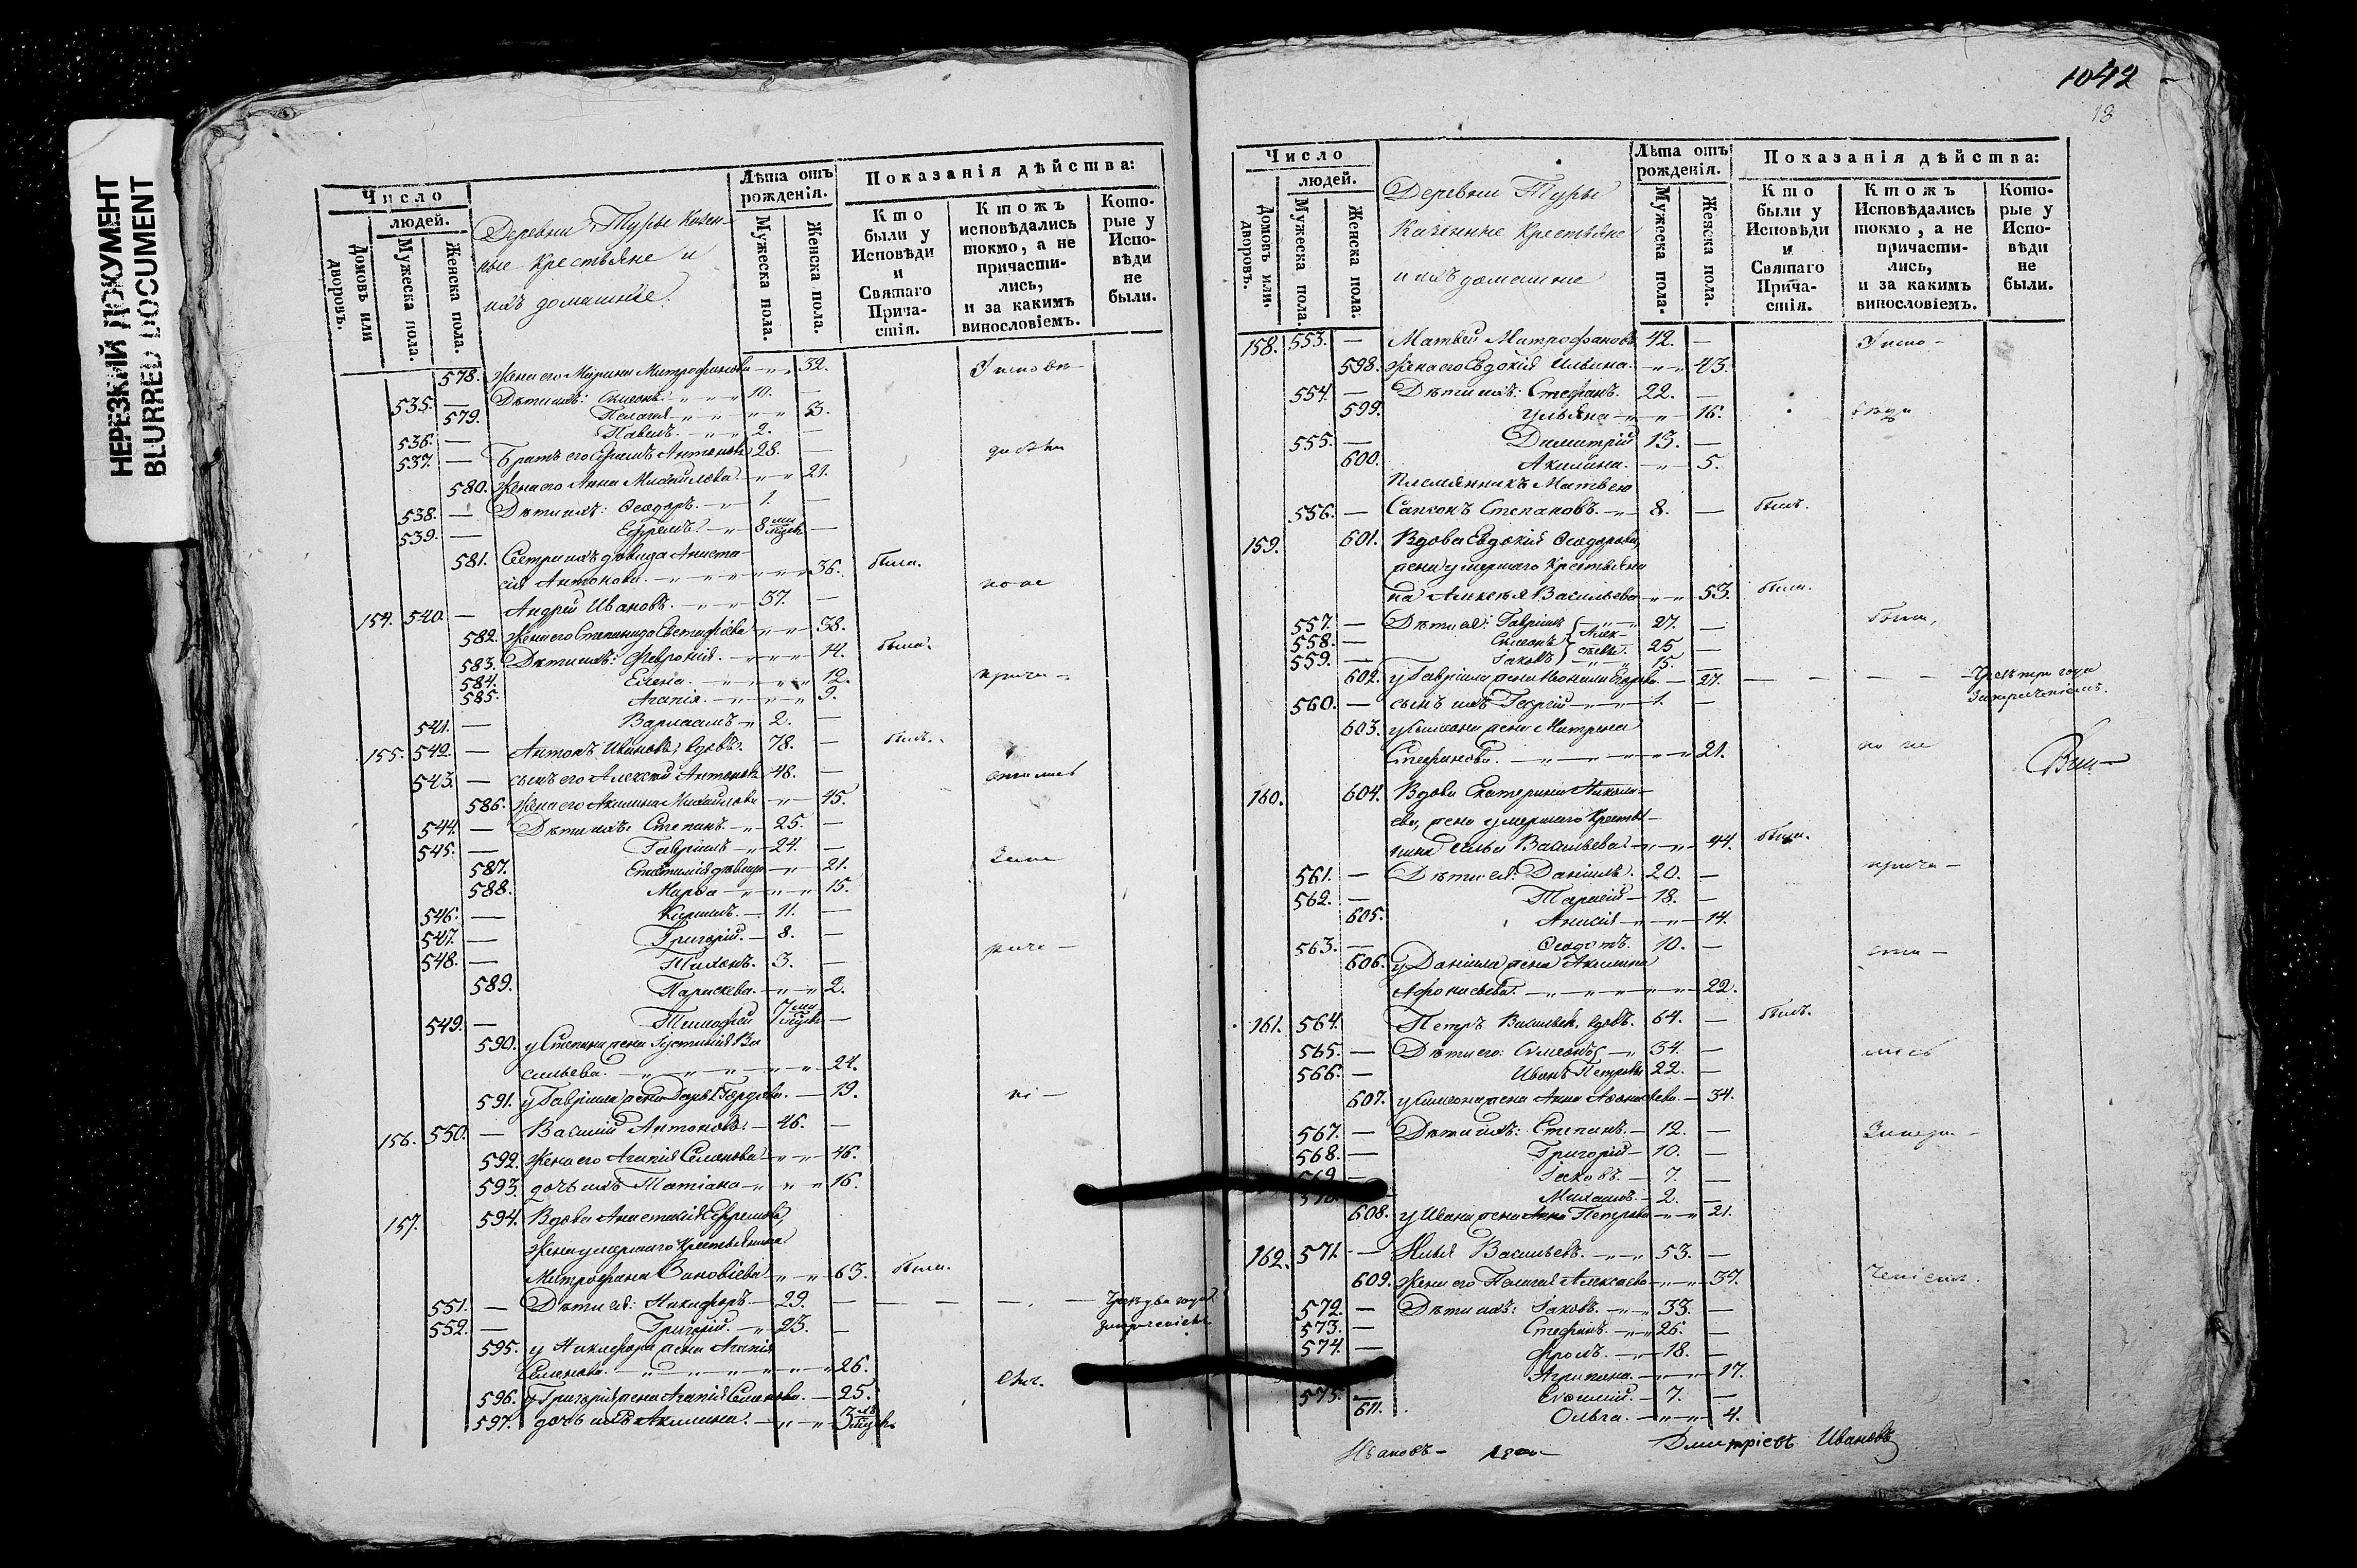 НЕРЕЗКИЙ ДОКУМЕНТ
BLURRED DOCUMENT
Число
людей.
Домовъ или дворовъ.
Мужеска пола.
Женска пола.
Деревни Туры Казен-
ные Крестьяне и
ихъ домашніе.
Лѣта отъ рожденія.
Мужеска пола.
Женска пола.
Показанія дѣйства:
Кто были у Исповѣди и Святаго Прича-стія.
Ктожъ исповѣдались токмо, а не причасти-лись, и за какимъ винословіемъ.
Кото-рые у Испо-вѣди не были.
578. Жена его Марина Митрофанова 32.
535. — Дѣти ихъ: Симеонъ 10. —
579. Пелагея 5.
536. — Павелъ 2. —
537. — Братъ его Ефремъ Антоновъ 28. —
580. Жена его Анна Михайлова 21.
538. — Дѣти ихъ: Ѳеодоръ 1. —
539. — Ефремъ 8 ми мѣсяц —
581. Сестра ихъ дѣвица Анаста-
сія Антонова 36. была.
154. 540. — Андрей Ивановъ 37. —
582. Жена его Степанида Евстафіева 38.
583. Дѣти ихъ: Февронія 14. были.
584. Елена 12.
585. Агапія 9.
541. — Варлаамъ 2. —
155. 542. — Антонъ Ивановъ, вдовъ. 78. — былъ.
543. — сынъ его Алексѣй Антоновъ 48. —
586. Жена его Акилина Михайлова 45.
544. — Дѣти ихъ: Степанъ 25. —
545. — Гавріилъ 24. —
587. дѣвица 21.
588. Марѳа 15.
546. — Кириллъ 11. —
547. — Григорій 8. —
548. — Тихонъ. 3. —
589. Параскева 2.
549. — Тимофей 7 ми мѣсяц —
590. у Степана жена Іустинія Ва
сильева 24.
591. у Гавріила жена Дарья Гордѣева 19.
156. 550. — Василій Антоновъ 46. —
592. Жена его Агапія Семенова 46.
593. дочь ихъ Татіана 16.
157. 594. Вдова Анастасія Ефремова,
Жена умершаго Крестьянина
Митрофана Зиновіева 63. была.
551. — Дѣти ея: Никифоръ 29. — Чрезъ два года
552. — Григорій 23. — запреченіемъ
595. у Никифора жена Агапія
Семенова 26.
596. у Григорія жена Агапія Семенова 25.
597. дочь ихъ Акилина 3 мѣсяц
1042
18
Число
людей.
Домовъ или дворовъ.
Мужеска пола.
Женска пола.
Деревни Туры
Казенные Крестьяне
и ихъ домашніе
Лѣта отъ рожденія.
Мужеска пола.
Женска пола.
Показанія дѣйства:
Кто были у Исповѣди и Святаго Прича-стія.
Ктожъ Исповѣдались токмо, а не причасти-лись, и за какимъ винословіемъ.
Кото-рые у Испо-вѣди не были.
158. 553. — Матвей Митрофановъ 42. —
598. Жена его Евдокія Ильина 43.
554. — Дѣти ихъ: Стефанъ. 22. —
599. Ульяна 16.
555. — Димитрій 13. —
600. Акилина 5.
Племянникъ Матвею
556. — Сапсонъ Степановъ 8. — былъ.
159. 601. Вдова Евдокія Ѳеодорова,
жена умершаго Крестьяни
на Алексѣя Васильева 53. была.
557. — Дѣти ея: Гавріилъ 27. —
558. — Симеонъ Алек- 25 —
559. — Іаковъ сѣевы 15. —
602. у Гавріила жена 27. — Чрезъ три года
560. — сынъ ихъ Георгій 1. —
603. у Симеона жена Матрена
Стефанова 21.
160. 604. Вдова Екатерина Никола-
ева, жена умершаго Крестья-
нина Васильева 44. была.
561. — Дѣти ея: Даніилъ. 20. —
562. — Тарасій 18. —
605. Анисія 14.
563. — Ѳеодотъ. 10. —
606. у Даніила жена Акилина
Аѳонасьева 22.
161. 564. Петръ Васильевъ, вдовъ. 64. — былъ.
565. — Дѣти его: Симеонъ 34. —
566. — Иванъ Петровы 22. —
607. у Симеона жена Анна Аѳонасьева 34.
567. — Дѣти ихъ: Степанъ 12. —
568. — Григорій 10. —
569. — Іаковъ 7. —
570. Михаилъ 2. —
608. у Ивана жена Анна Петрова 21.
162. 571. — Илья Васильевъ 53. —
609. Жена его Пелагея Алексѣева 37.
572. — Дѣти ихъ: Іаковъ 33. —
573. — Стефанъ 26. —
574. — Фролъ 18. —
Агрипина 17.
575. — Евѳимій 7. —
611. Ольга 4.
Дмитріевъ Ивановъ